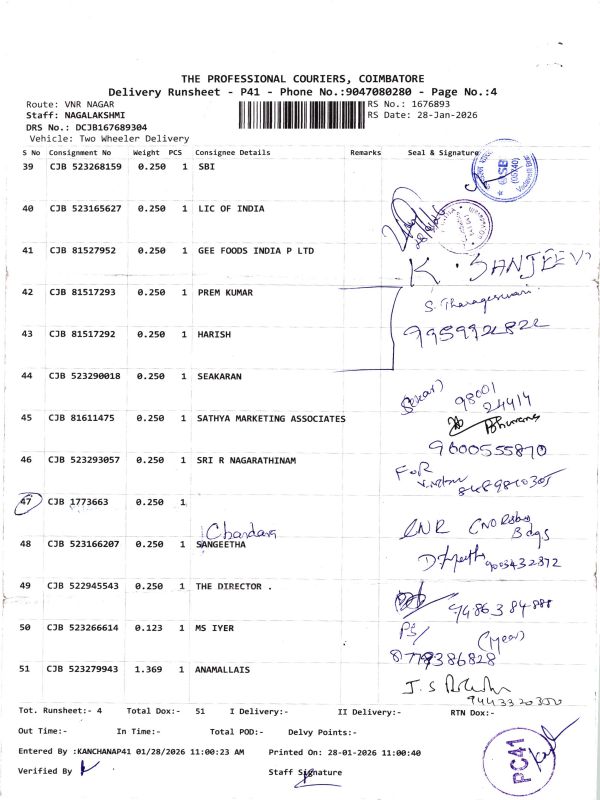 THE PROFESSIONAL COURIERS, COIMBATORE
Delivery Runsheet - P41 - Phone No.:9047080280 - Page No.:4
Route: VNR NAGAR
RS No.: 1676893
Staff: NAGALAKSHMI
RS Date: 28-Jan-2026
DRS No.: DCJB167689304
Vehicle: Two Wheeler Delivery
S No Consignment No Weight PCS Consignee Details Remarks Seal & Signature
39 CJB 523268159 0.250 1 SBI
40 CJB 523165627 0.250 1 LIC OF INDIA
41 CJB 81527952 0.250 1 GEE FOODS INDIA P LTD
K. SANJEEV
42 CJB 81517293 0.250 1 PREM KUMAR
S. Tharageswari
43 CJB 81517292 0.250 1 HARISH
9959926822
44 CJB 523290018 0.250 1 SEAKARAN
98001
24414
45 CJB 81611475 0.250 1 SATHYA MARKETING ASSOCIATES
9600555870
46 CJB 523293057 0.250 1 SRI R NAGARATHINAM
FOR
47 CJB 1773663 0.250 1
Chandara
48 CJB 523166207 0.250 1 SANGEETHA
9003432872
49 CJB 522945543 0.250 1 THE DIRECTOR .
9486384888
50 CJB 523266614 0.123 1 MS IYER
51 CJB 523279943 1.369 1 ANAMALLAIS
9443320350
Tot. Runsheet:- 4 Total Dox:- 51 I Delivery:- II Delivery:- RTN Dox:-
Out Time:- In Time:- Total POD:- Delvy Points:-
Entered By :KANCHANAP41 01/28/2026 11:00:23 AM Printed On: 28-01-2026 11:00:40
Verified By
Staff Signature
PC41